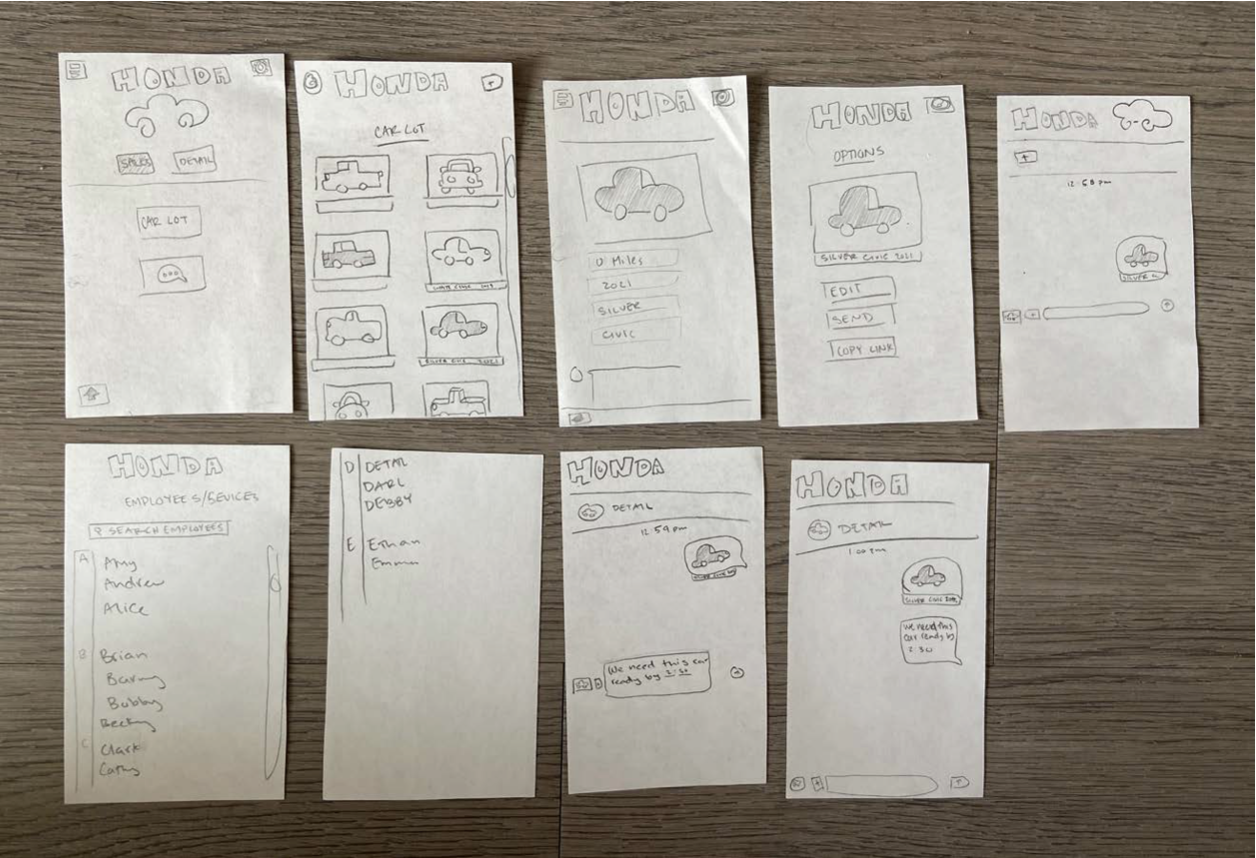 HONDA
SALES DETAIL
CAR LOT
HONDA
CAR LOT
SILVER CIVIC 2021
HONDA
0 Miles
2021
SILVER
CIVIC
HONDA
OPTIONS
SILVER CIVIC 2021
EDIT
SEND
COPY LINK
HONDA
12:58 pm
SILVER
HONDA
EMPLOYEES/SEVICES
SEARCH EMPLOYEES
A Amy
Andrew
Alice
B Brian
Barny
Bobby
Becky
C Clark
Cathy
D DETAIL
DARL
DEBBY
E Ethan
Emma
HONDA
DETAIL
12:59pm
SILVER CIVIC
We need this car
ready by 2:30
HONDA
DETAIL
1:00 pm
SILVER CIVIC 2021
We need this
car ready by
2:30